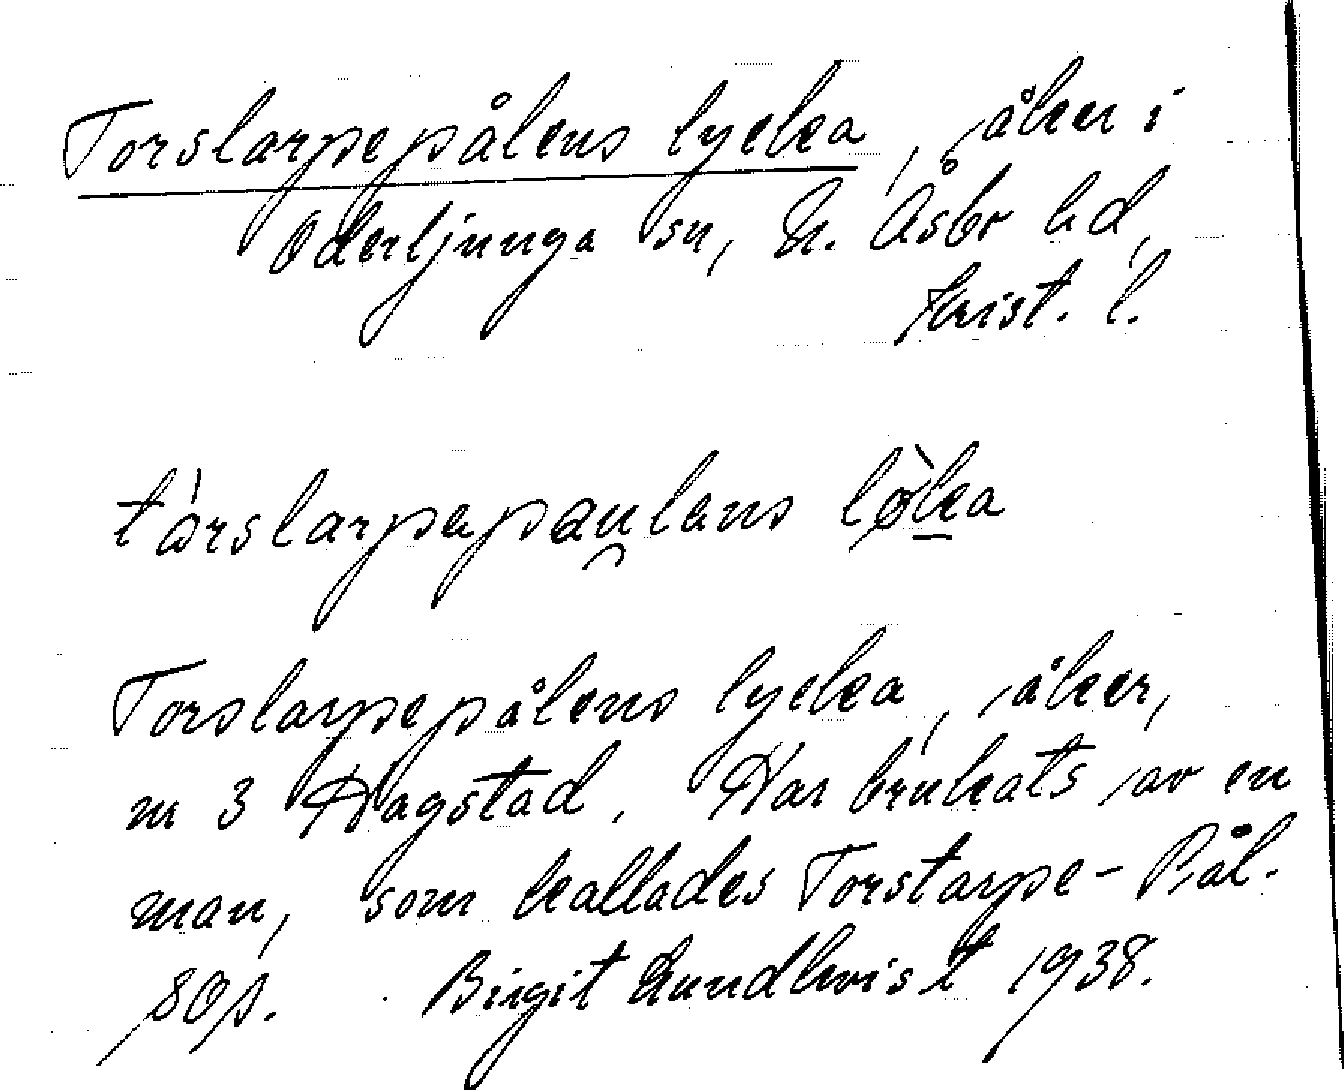 Torslarpepålens lycka, åker i
Oderljunga sn, N. Åsbo hd,
Krist. l.
tòrslarpepaulens lø̀ka
Torslarpepålens lycka, åker,
nr 3 Hagstad. Har brukats av en
man, som kallades Torstarpe-Pål.
80p. Birgit Lundkvist 1938.